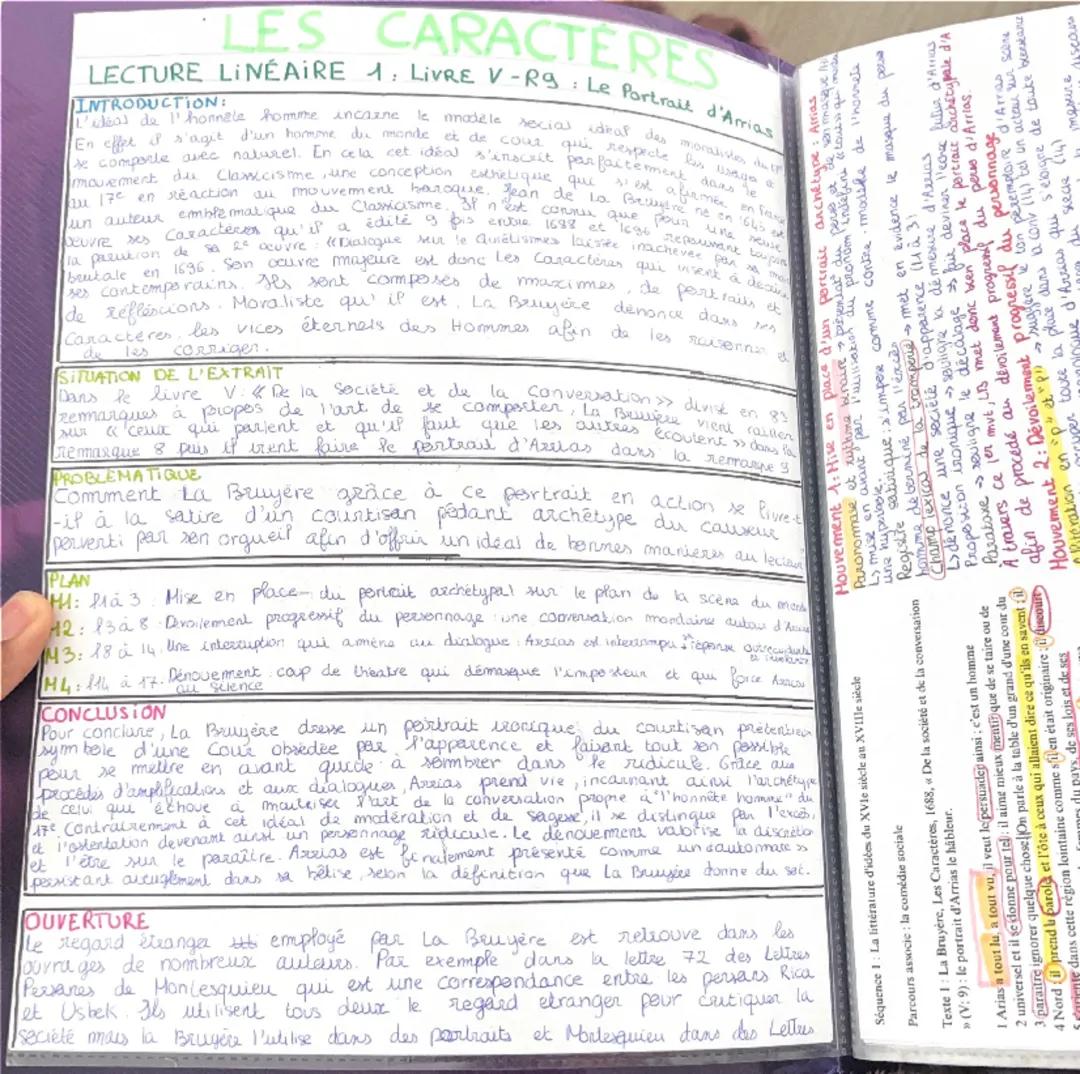 LES CARACTÈRES
LECTURE LINÉAIRE 1 : LIVRE V - R9 : Le Portrait d'Arrias
INTRODUCTION :
L'idéal de l'honnête homme incarne le modèle social idéal des moralistes du
En effet il s'agit d'un homme du monde et de cour qui respecte les usages et
se comporte avec naturel. En cela cet idéal s'inscrit parfaitement dans le
mouvement du Classicisme, une conception esthétique qui s'est affirmée en France
au 17e en réaction au mouvement baroque. Jean de La Bruyère né en 1645 est
un auteur emblématique du Classicisme. Il n'est connu que pour une seule
œuvre ses Caractères qu'il a édité 9 fois entre 1688 et 1696 repoussant toujours
la parution de sa 2e œuvre : «Dialogue sur le Quiétisme» laissée inachevée par sa mort
brutale en 1696. Son œuvre majeure est donc Les Caractères qui visent à décrire
ses contemporains. Ils sont composés de maximes, de portraits et
de réfléxions. Moraliste qu'il est, La Bruyère dénonce dans ses
Caractères, les vices éternels des Hommes afin de les raisonner et
de les corriger.
SITUATION DE L'EXTRAIT
Dans le livre V : « De la société et de la Conversation » divisé en 83
remarques à propos de l'art de se comporter, La Bruyère vient railler
sur « ceux qui parlent et qu'il faut que les autres écoutent » dans la
remarque 8 puis il vient faire le portrait d'Arrias dans la remarque 9
PROBLÉMATIQUE
Comment La Bruyère grâce à ce portrait en action se livre-t
-il à la satire d'un courtisan pédant archétype du causeur
perverti par son orgueil afin d'offrir un idéal de bonnes manières au lecteur
PLAN
M1 : l1 à 3 Mise en place du portrait archétypal sur le plan de la scène du monde
M2 : l3 à 8 Dévoilement progressif du personnage : une conversation mondaine autour d'Arrias
M3 : l8 à 14. Une interruption qui amène au dialogue : Arrias est interrompu
M4 : l14 à 17. Dénouement : coup de théâtre qui démasque l'imposteur et qui force Arrias
au silence
CONCLUSION
Pour conclure, La Bruyère dresse un portrait ironique du courtisan prétentieux
symbole d'une Cour obsédée par l'apparence et faisant tout son possible
pour se mettre en avant quide à sombrer dans le ridicule. Grâce aux
procédés d'amplifications et aux dialogues, Arrias prend vie, incarnant ainsi l'archétype
de celui qui échoue à maîtriser l'art de la conversation propre à "l'honnête homme" du
17e. Contrairement à cet idéal de modération et de sagesse, il se distingue par l'excès,
et l'ostentation devenant ainsi un personnage ridicule. Le dénouement valorise la discrétion
et l'être sur le paraître. Arrias est finalement présenté comme un «automate»
persistant aveuglément dans sa bêtise, selon la définition que La Bruyère donne du sot.
OUVERTURE
Le regard étranger employé par La Bruyère est retrouvé dans les
ouvrages de nombreux auteurs. Par exemple dans la lettre 72 des Lettres
Persanes de Montesquieu qui est une correspondance entre les persans Rica
et Usbek. Ils utilisent tous deux le regard étranger pour critiquer la
société mais la Bruyère l'utilise dans des portraits et Montesquieu dans des Lettres
Mouvement 1 : Mise en place d'un portrait archétype : Arrias
Paronomase et rythme binaire
L> mise en avant par l'utilisation du pronom indéfini
une hyperbole.
Registre satirique : s'impose comme contre-modèle de l'honnête
homme déterminé par l'excès
Champ lexical de la tromperie → met en évidence le masque du perso
L> dénonce une société d'apparence (l1 à 3)
Proposition ironique → souligne la démesure d'Arrias
Parataxe → souligne le décalage → fait deviner l'échec futur d'Arrias
À travers ce 1er mvt LB met donc bien place le portrait archétypale d'A
afin de procédé au dévoilement progressif du perso d'Arrias.
Mouvement 2 : Dévoilement progressif du personnage
Allitération en "p" et "r"
Séquence 1 : La littérature d'idées du XVIe siècle au XVIIIe siècle
Parcours associé : la comédie sociale
Texte 1 : La Bruyère, Les Caractères, 1688, « De la société et de la conversation
» (V; 9) : le portrait d'Arrias le hâbleur.
1 Arias a tout lu, a tout vu, il veut le persuader ainsi ; c'est un homme
2 universel et il se donne pour tel : il aime mieux mentir que de se taire ou de
3 paraître ignorer quelque chose. On parle à la table d'un grand d'une cour du
4 Nord : il prend la parole, et l'ôte à ceux qui allaient dire ce qu'ils en savent ; il
dans cette région lointaine comme s'il en était originaire ; il discourt
du pays, de ses lois et de ses